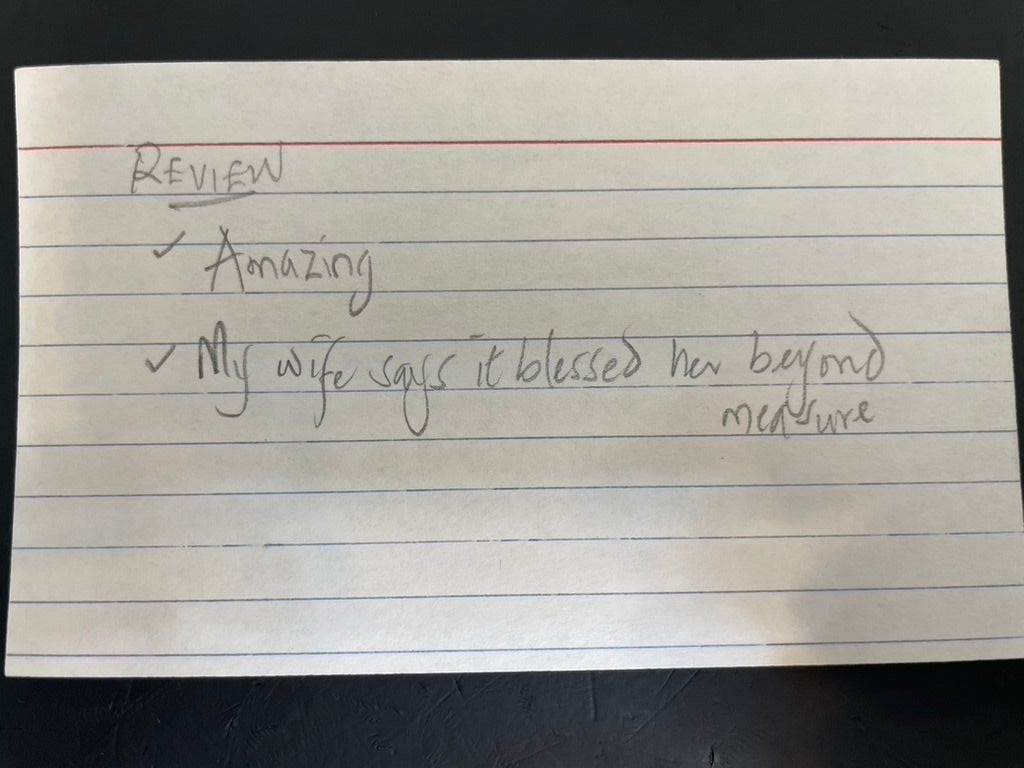 REVIEW
✓ Amazing
✓ My wife says it blessed her beyond
measure